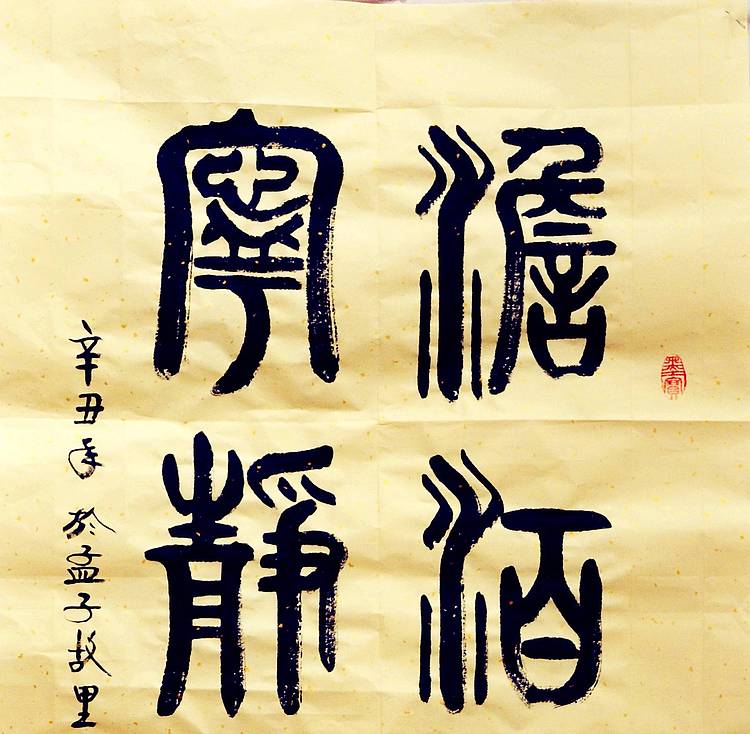 澹泊
寧靜
辛丑年 於孟子故里
墨寶